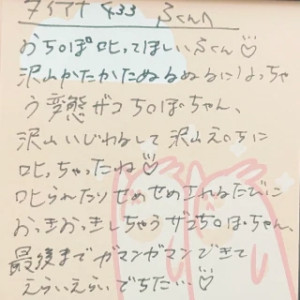 ダイアナ 433 ふくんへ
おち○ぽ叱ってほしいふくん♡
沢山かたかたぬるぬるになっちゃ
う変態ザコちんぽちゃん、
沢山いじわるして沢山えっちに
叱っちゃったね♡
叱られたりせめせめされるたびに
おっきおっきしちゃうザコち○ぽちゃん、
最後までガマンガマンできて
えらいえらいでちた…♡